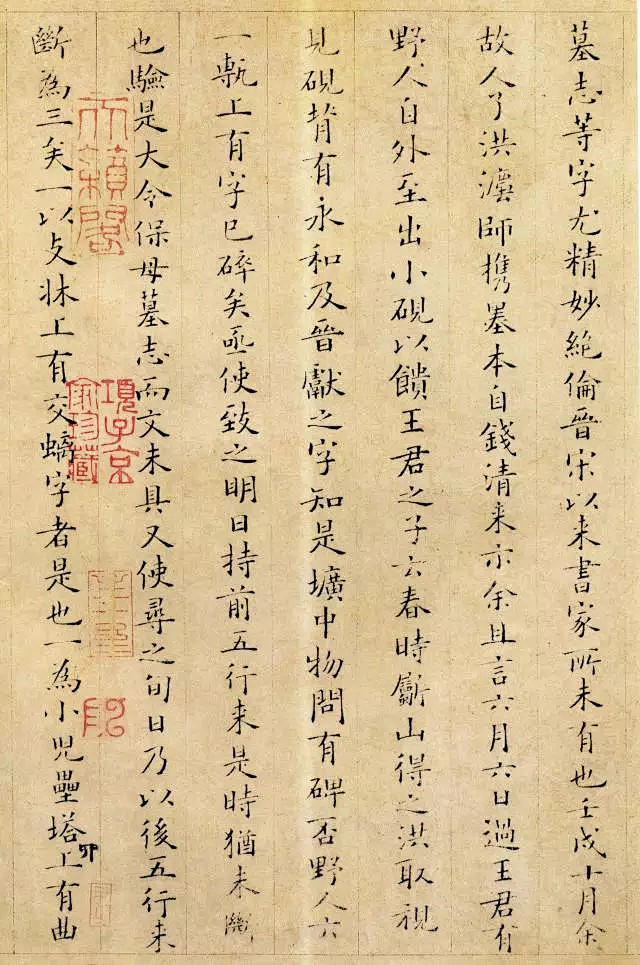 墓志等字尤精妙絶倫晉宋以来書家所未有也壬戌十月余
故人了洪灋師攜墨本自錢清来示余且言六月六日過王君有
野人自外至出小硯以饋王君之子云春時斸山得之洪取視
見硯背有永和及晉獻之字知是壙中物問有碑否野人云
一甎上有字已碎矣亟使致之明日持前五行来是時猶未斷
也驗是大令保母墓志而文未具又使尋之旬日乃以後五行来
斷為三矣一以支牀上有交螭字者是也一為小兒壘塔上有曲
卯
天籟閣
項子京
家珍藏